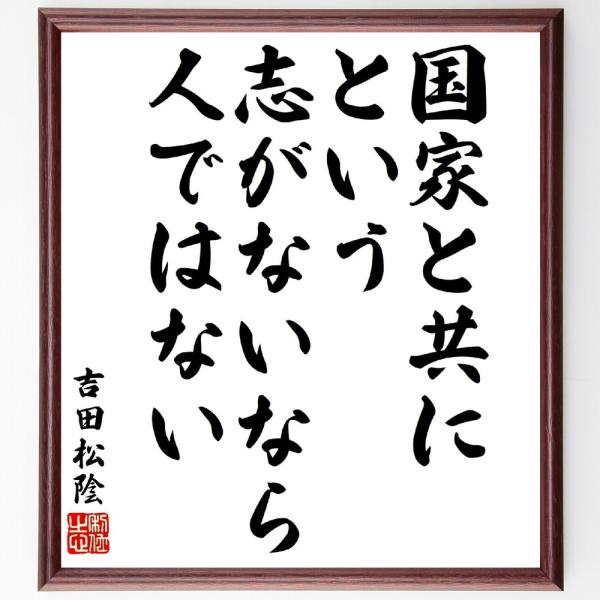 国家と共に
という
志がないなら
人ではない
吉田松陰